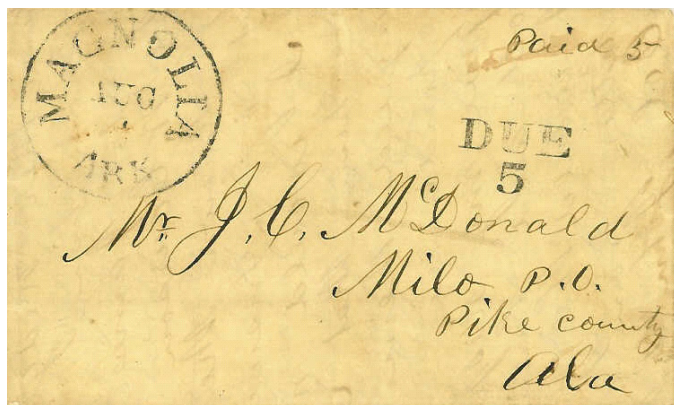 MAGNOLIA
AUG
ARK
Paid 5
DUE
5
Mr. J. C. McDonald
Milo P.O.
Pike county
Ala